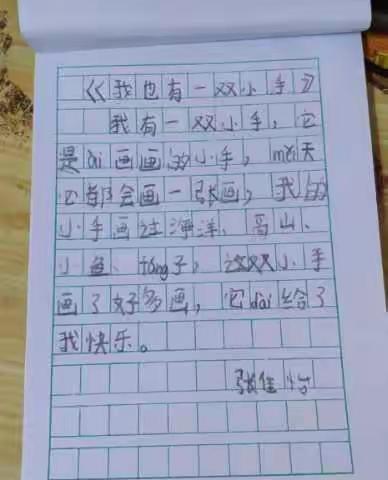 《我也有一双小手》
我有一双小手，它
是ài画画的小手，měi天
它都会画一张画，我的
小手画过海洋、高山、
小鱼、tóng子，这双小手
画了好多画，它dài给了
我快乐。
张佳怡